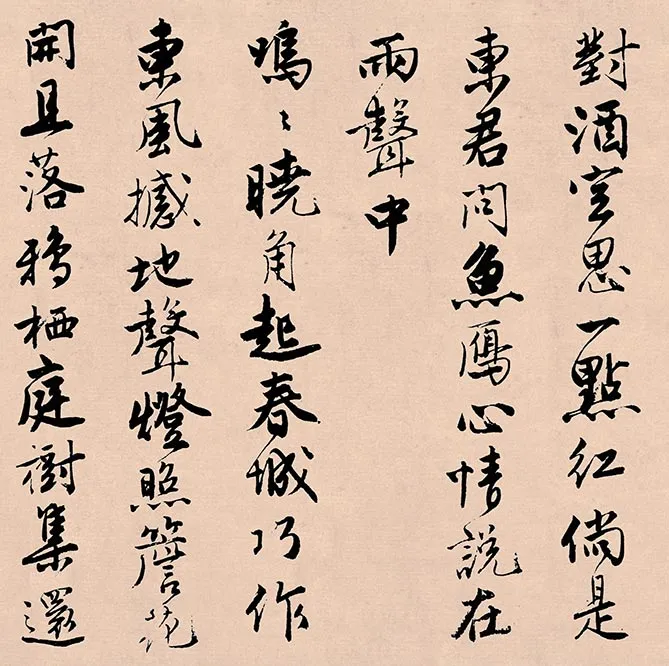 對酒空思一點紅倘是
東君問魚雁心情說在
雨聲中
嗚〻曉角起春城巧作
東風撼地聲燈照簷花
開且落鴉栖庭樹集還